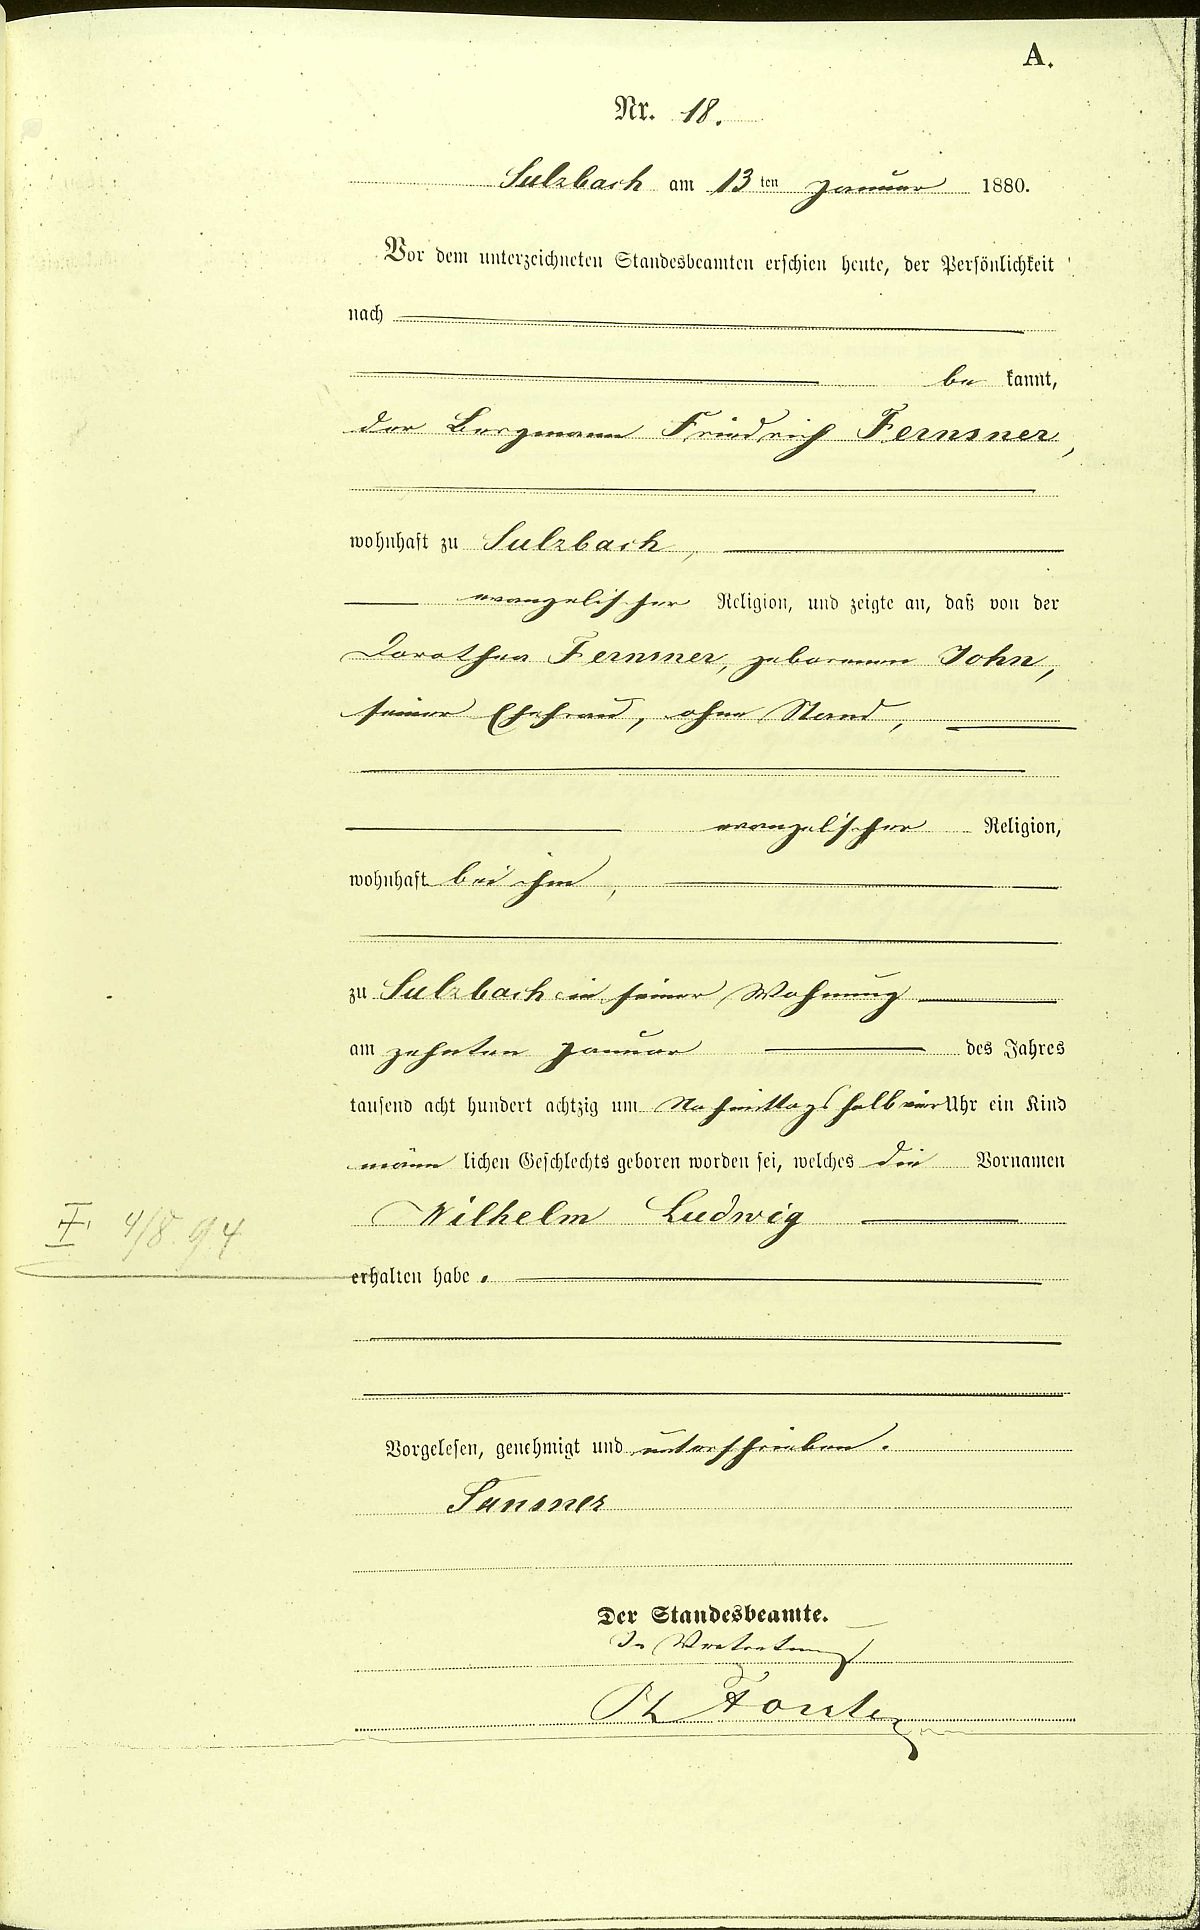 A.
Nr. 18.
Sulzbach am 13 ten Januar 1880.
Vor dem unterzeichneten Standesbeamten erschien heute, der Persönlichkeit
nach
be kannt,
der Bergmann Friedrich Fernsner,
wohnhaft zu Sulzbach,
evangelischer Religion, und zeigte an, daß von der
Dorothea Fernsner, geborenen John,
seiner Ehefrau, ohne Stand,
evangelischer Religion,
wohnhaft bei ihm,
zu Sulzbach in seiner Wohnung
am zehnten Januar des Jahres
tausend acht hundert achtzig um Nachmittags halb vier Uhr ein Kind
männ lichen Geschlechts geboren worden sei, welches die Vornamen
Wilhelm Ludwig
4/8 94
erhalten habe.
Vorgelesen, genehmigt und unterschrieben.
Der Standesbeamte.
In Vertretung